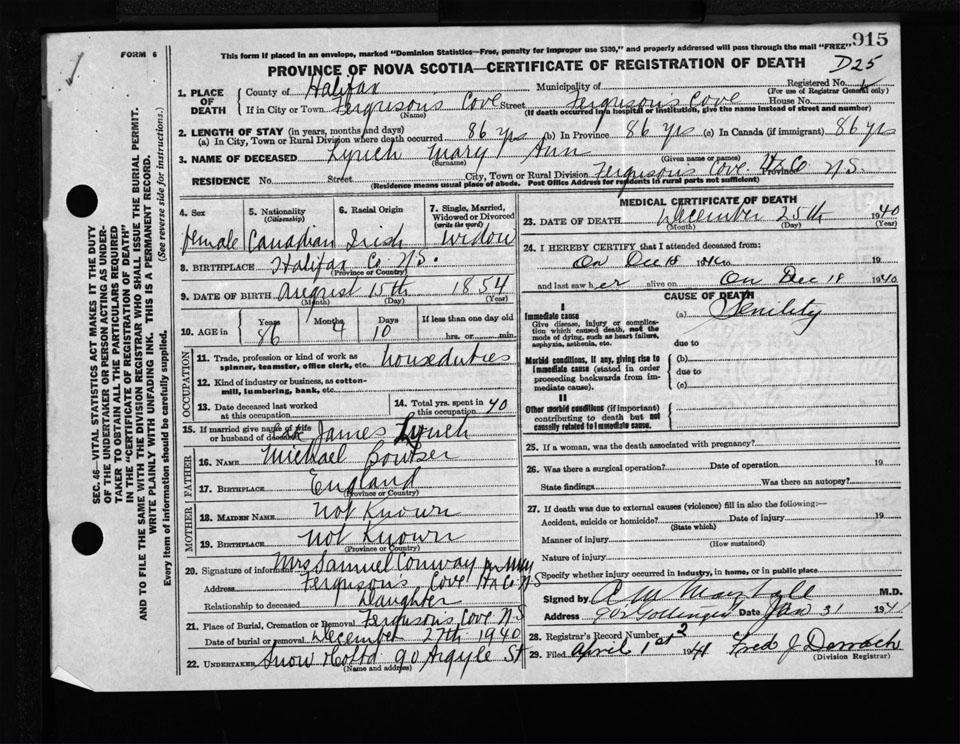 FORM 6
This form if placed in an envelope, marked "Dominion Statistics—Free, penalty for improper use $300," and properly addressed will pass through the mail "FREE"
915
D25
PROVINCE OF NOVA SCOTIA—CERTIFICATE OF REGISTRATION OF DEATH
1. PLACE OF DEATH
County of Halifax Municipality of Registered No.
(For use of Registrar General only)
If in City or Town Ferguson's Cove Street Ferguson's Cove House No.
(Name) (If death occurred in a hospital or institution, give the name instead of street and number)
2. LENGTH OF STAY (in years, months and days)
(a) In City, Town or Rural Division where death occurred 86 yrs (b) In Province 86 yrs (c) In Canada (if immigrant) 86 yrs
3. NAME OF DECEASED Lynch Mary Ann
(Surname) (Given name or names)
RESIDENCE No. Street City, Town or Rural Division Ferguson's Cove Hx Co Province NS
(Residence means usual place of abode. Post Office Address for residents in rural parts not sufficient)
4. Sex female
5. Nationality (Citizenship) Canadian
6. Racial Origin Irish
7. Single, Married, Widowed or Divorced (write the word) widow
8. BIRTHPLACE Halifax Co. N.S.
(Province or Country)
9. DATE OF BIRTH August 15th 1854
(Month) (Day) (Year)
10. AGE in Years 86 Months 4 Days 10 If less than one day old hrs. or min.
OCCUPATION
11. Trade, profession or kind of work as spinner, teamster, office clerk, etc. house duties
12. Kind of industry or business, as cotton-mill, lumbering, bank, etc.
13. Date deceased last worked at this occupation
14. Total yrs. spent in this occupation 40
15. If married give name of wife or husband of deceased James Lynch
FATHER
16. NAME Michael Bowser
17. BIRTHPLACE England
(Province or Country)
MOTHER
18. MAIDEN NAME Not Known
19. BIRTHPLACE Not Known
(Province or Country)
20. Signature of informant Mrs Samuel Conway
Address Ferguson's Cove Hx Co NS
Relationship to deceased Daughter
21. Place of Burial, Cremation or Removal Fergusons Cove NS
Date of burial or removal December 27th 1940
22. UNDERTAKER Snow & Co Ltd 90 Argyle St
(Name and address)
MEDICAL CERTIFICATE OF DEATH
23. DATE OF DEATH December 25th 1940
(Month) (Day) (Year)
24. I HEREBY CERTIFY that I attended deceased from:
On Dec 18 1940 19
and last saw her alive on On Dec 18 1940
CAUSE OF DEATH
I
Immediate cause
Give disease, injury or complication which caused death, not the mode of dying, such as heart failure, asphyxia, asthenia, etc.
(a) Senility
due to
Morbid conditions, if any, giving rise to immediate cause (stated in order proceeding backwards from immediate cause).
(b)
due to
(c)
II
Other morbid conditions (if important) contributing to death but not causally related to immediate cause.
25. If a woman, was the death associated with pregnancy?
26. Was there a surgical operation? Date of operation 19
State findings Was there an autopsy?
27. If death was due to external causes (violence) fill in also the following:—
Accident, suicide or homicide? Date of injury 19
(State which)
Manner of injury
(How sustained)
Nature of injury
Specify whether injury occurred in industry, in home, or in public place
Signed by A. M. Marshall M.D.
Address Gottingen Date Jan 31 1941
28. Registrar's Record Number 2
29. Filed April 1st 1941 Fred J
(Division Registrar)
SEC. 46—VITAL STATISTICS ACT MAKES IT THE DUTY
OF THE UNDERTAKER OR PERSON ACTING AS UNDER-
TAKER TO OBTAIN ALL THE PARTICULARS REQUIRED
IN THE "CERTIFICATE OF REGISTRATION OF DEATH"
AND TO FILE THE SAME WITH THE DIVISION REGISTRAR WHO SHALL ISSUE THE BURIAL PERMIT.
WRITE PLAINLY WITH UNFADING INK. THIS IS A PERMANENT RECORD.
Every item of information should be carefully supplied. (See reverse side for instructions.)